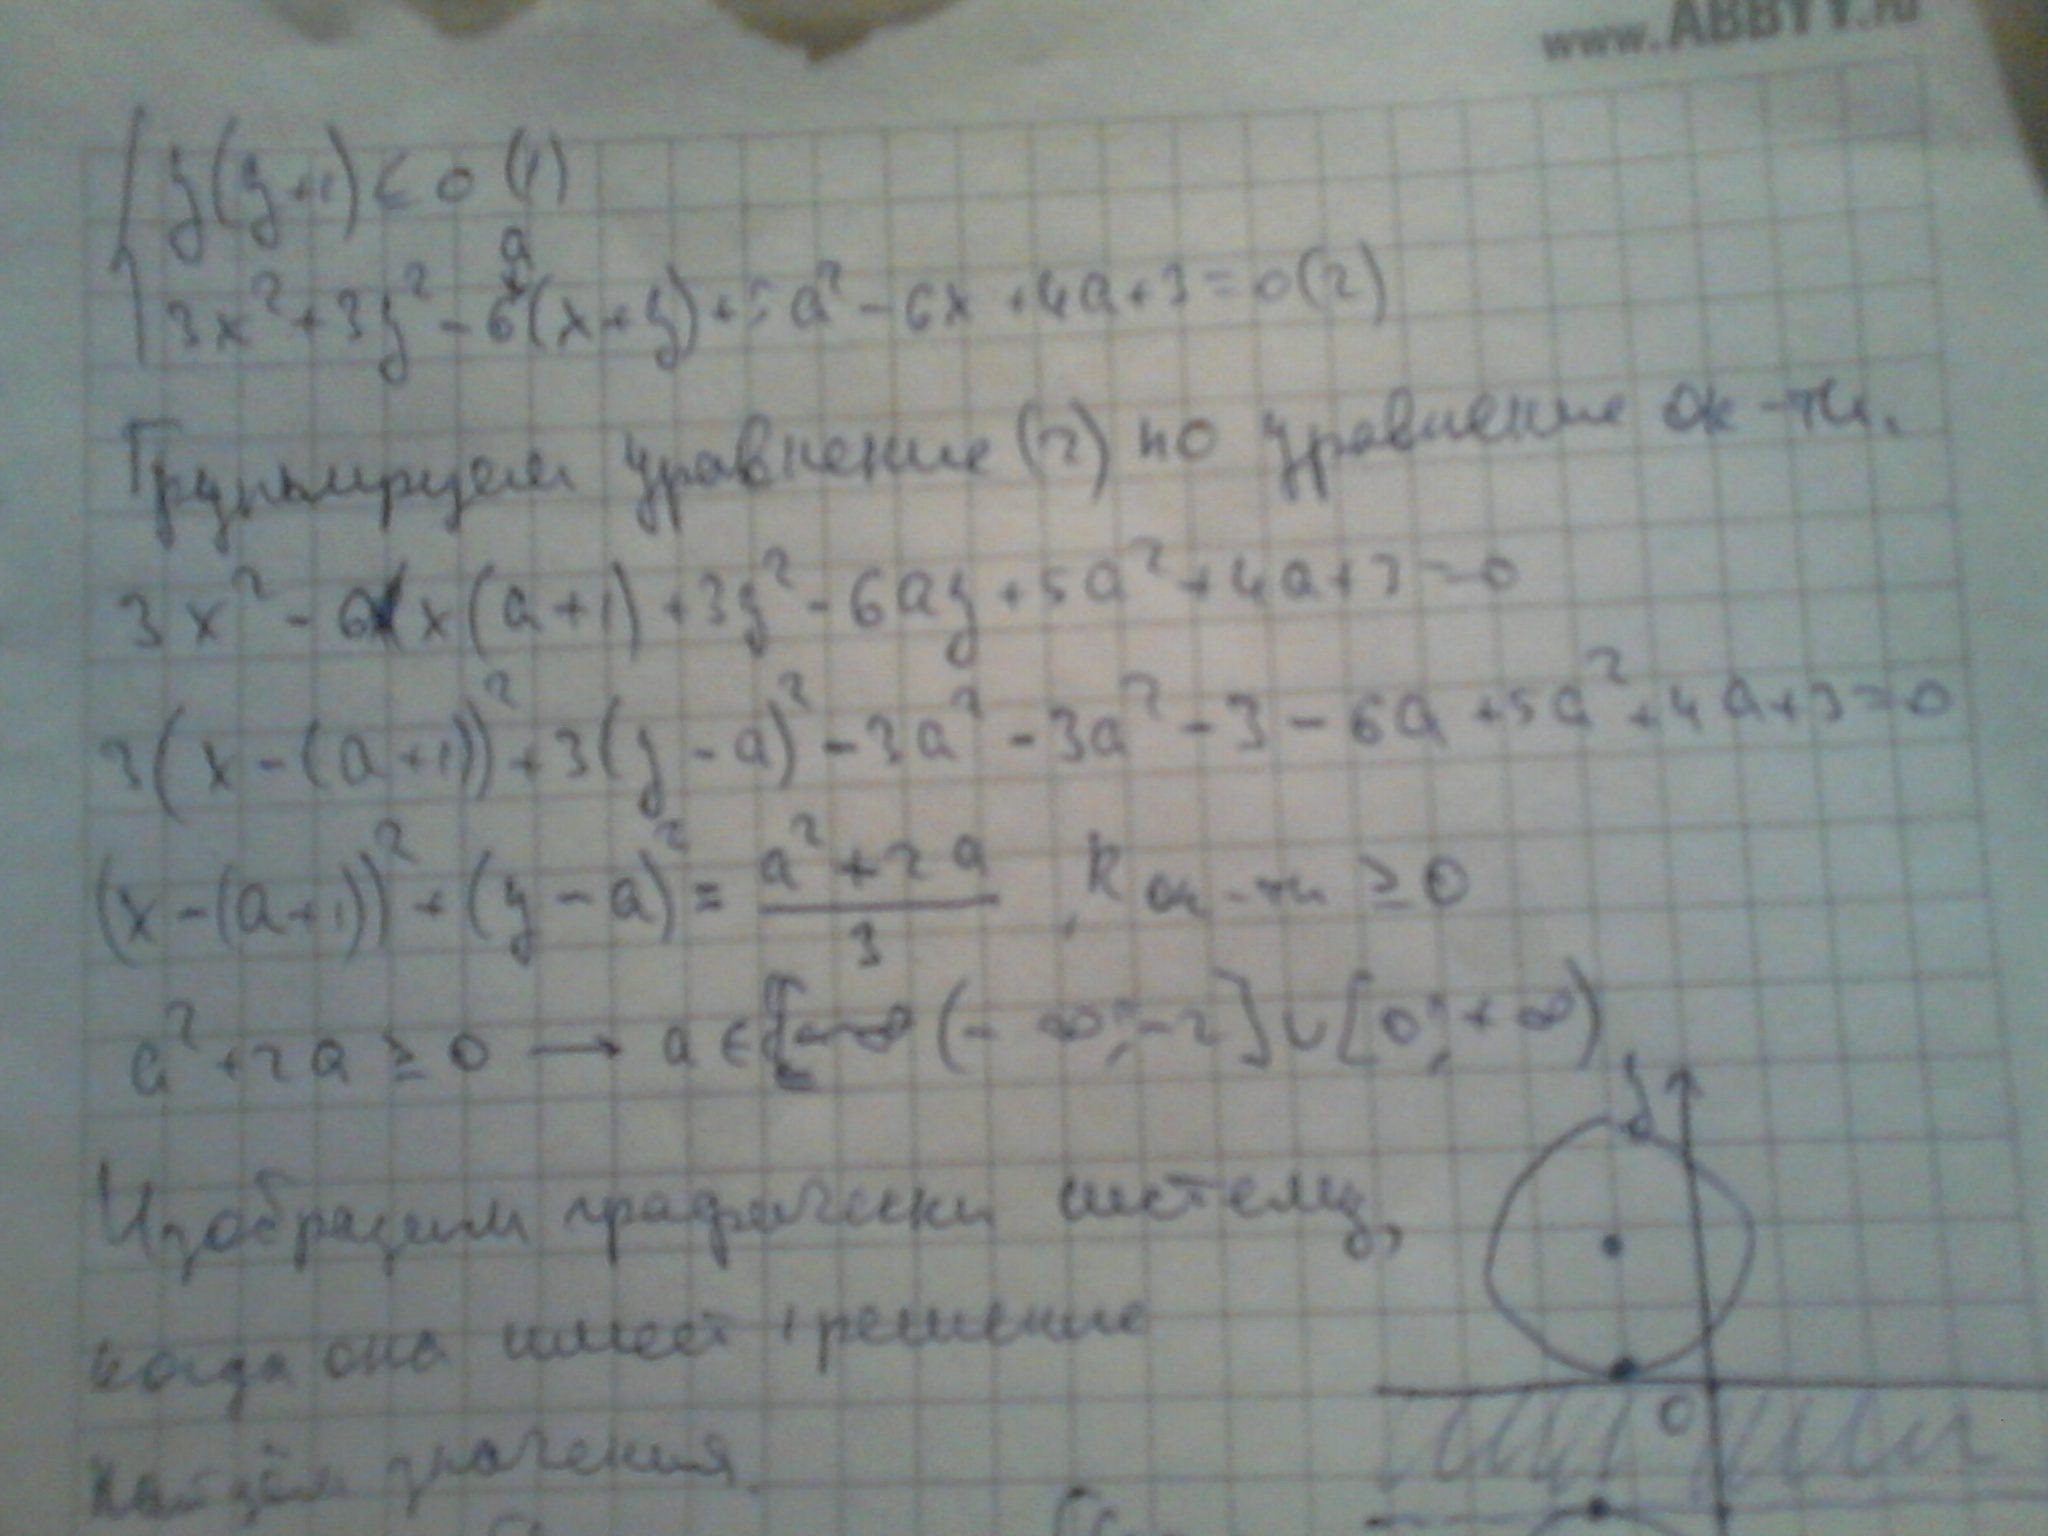 www.ABBYY.ru
y(y+1) ≤ 0 (1)
3x² + 3y² - 6a(x+y) + 5a² - 6x + 4a + 3 = 0 (2)
Группируем уравнение (2) по уравнение ок-ти.
3x² - 6x(a+1) + 3y² - 6ay + 5a² + 4a + 3 = 0
3(x-(a+1))² + 3(y-a)² - 3a² - 3a² - 3 - 6a + 5a² + 4a + 3 = 0
(x-(a+1))² + (y-a)² = (a²+2a)/3, R ок-ти ≥ 0
a² + 2a ≥ 0 → a ∈ (-∞; -2] ∪ [0; +∞)
y
Изобразим графически систему,
когда она имеет 1 решение
0
Найдём значения